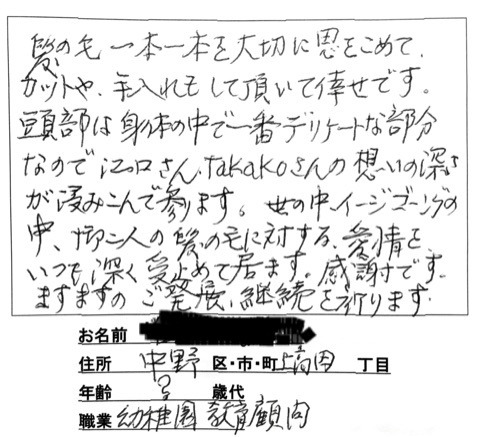 髪の毛 一本一本を大切に思をこめて、
カットや、手入れもして頂いて倖せです。
頭部は身体の中で一番デリケートな部分
なので 江口さん、takakoさんの想いの深さ
が浸みこんで参ります。世の中、イージーゴーイングの
中、お二人の髪の毛に対する、愛情を
いつも深く受止めて居ます。感謝です。
ますますのご発展、継続を祈ります。
お名前
住所 中野 区・市・町 上高田 丁目
年齢 歳代
職業 幼稚園 教育顧問